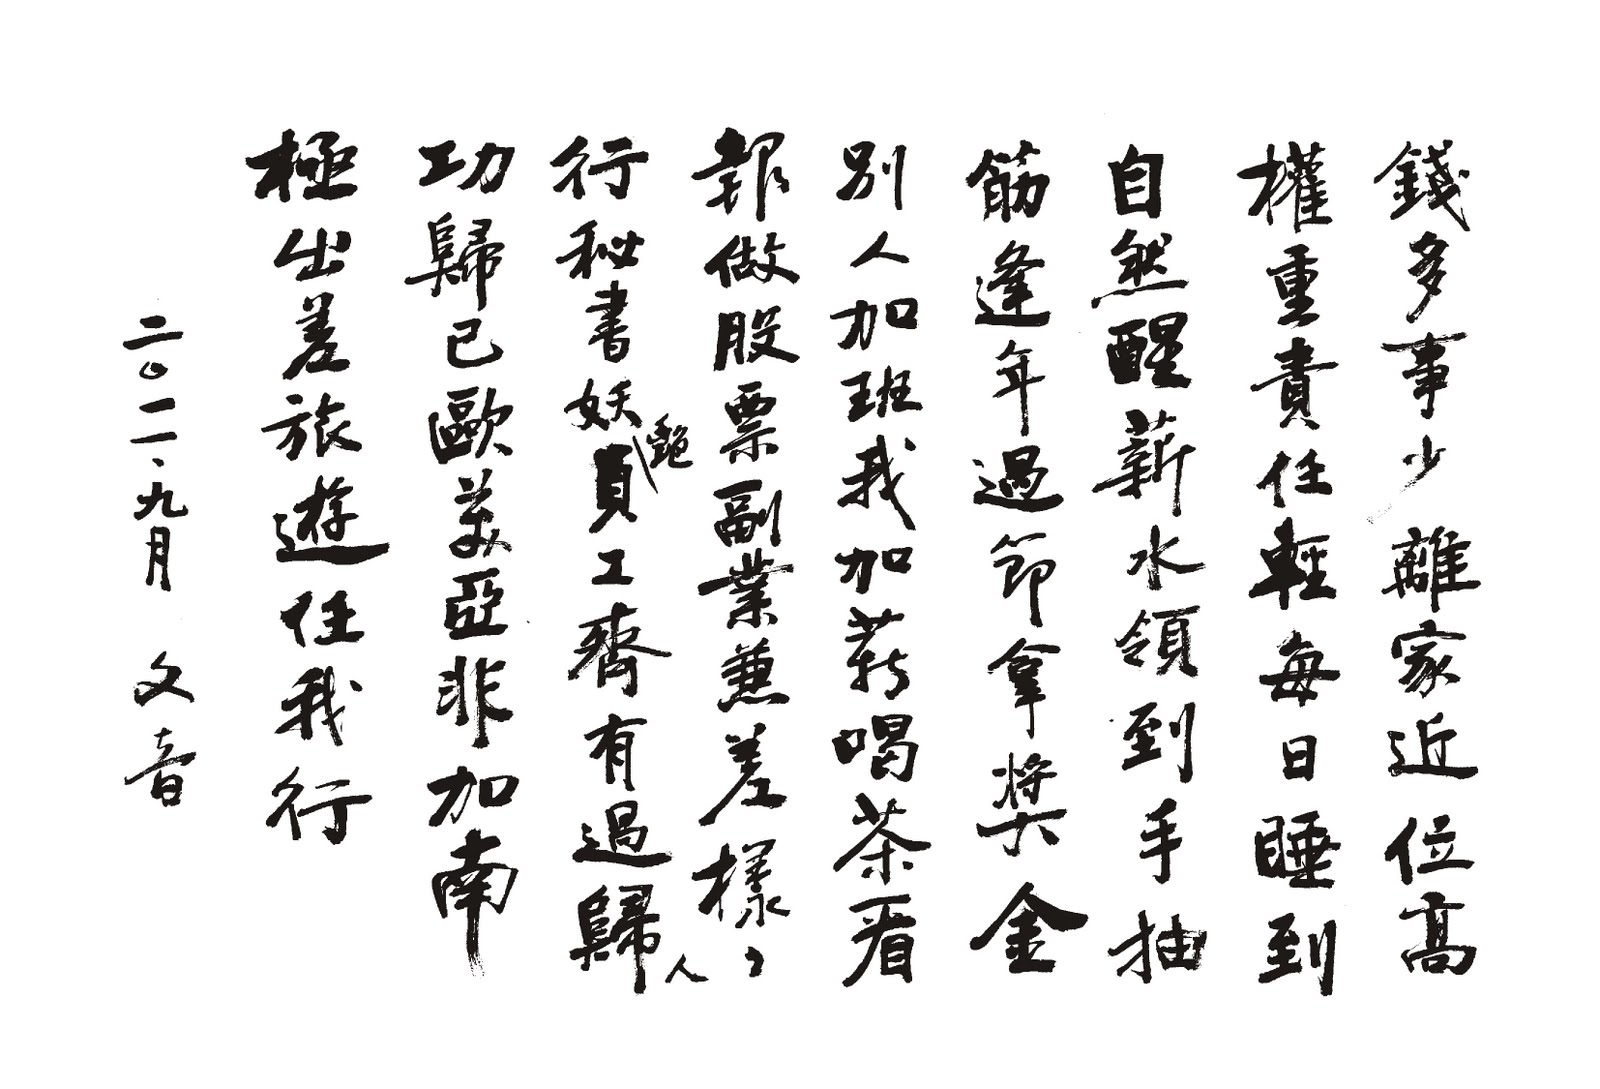 錢多事少離家近位高
權重責任輕每日睡到
自然醒薪水領到手抽
筋逢年過節拿獎金
別人加班我加薪喝茶看
報做股票副業兼差樣〻
行秘書妖艷員工齊有過歸人
功歸已歐美亞非加南
極出差旅遊任我行
二〇一一、九月 文音